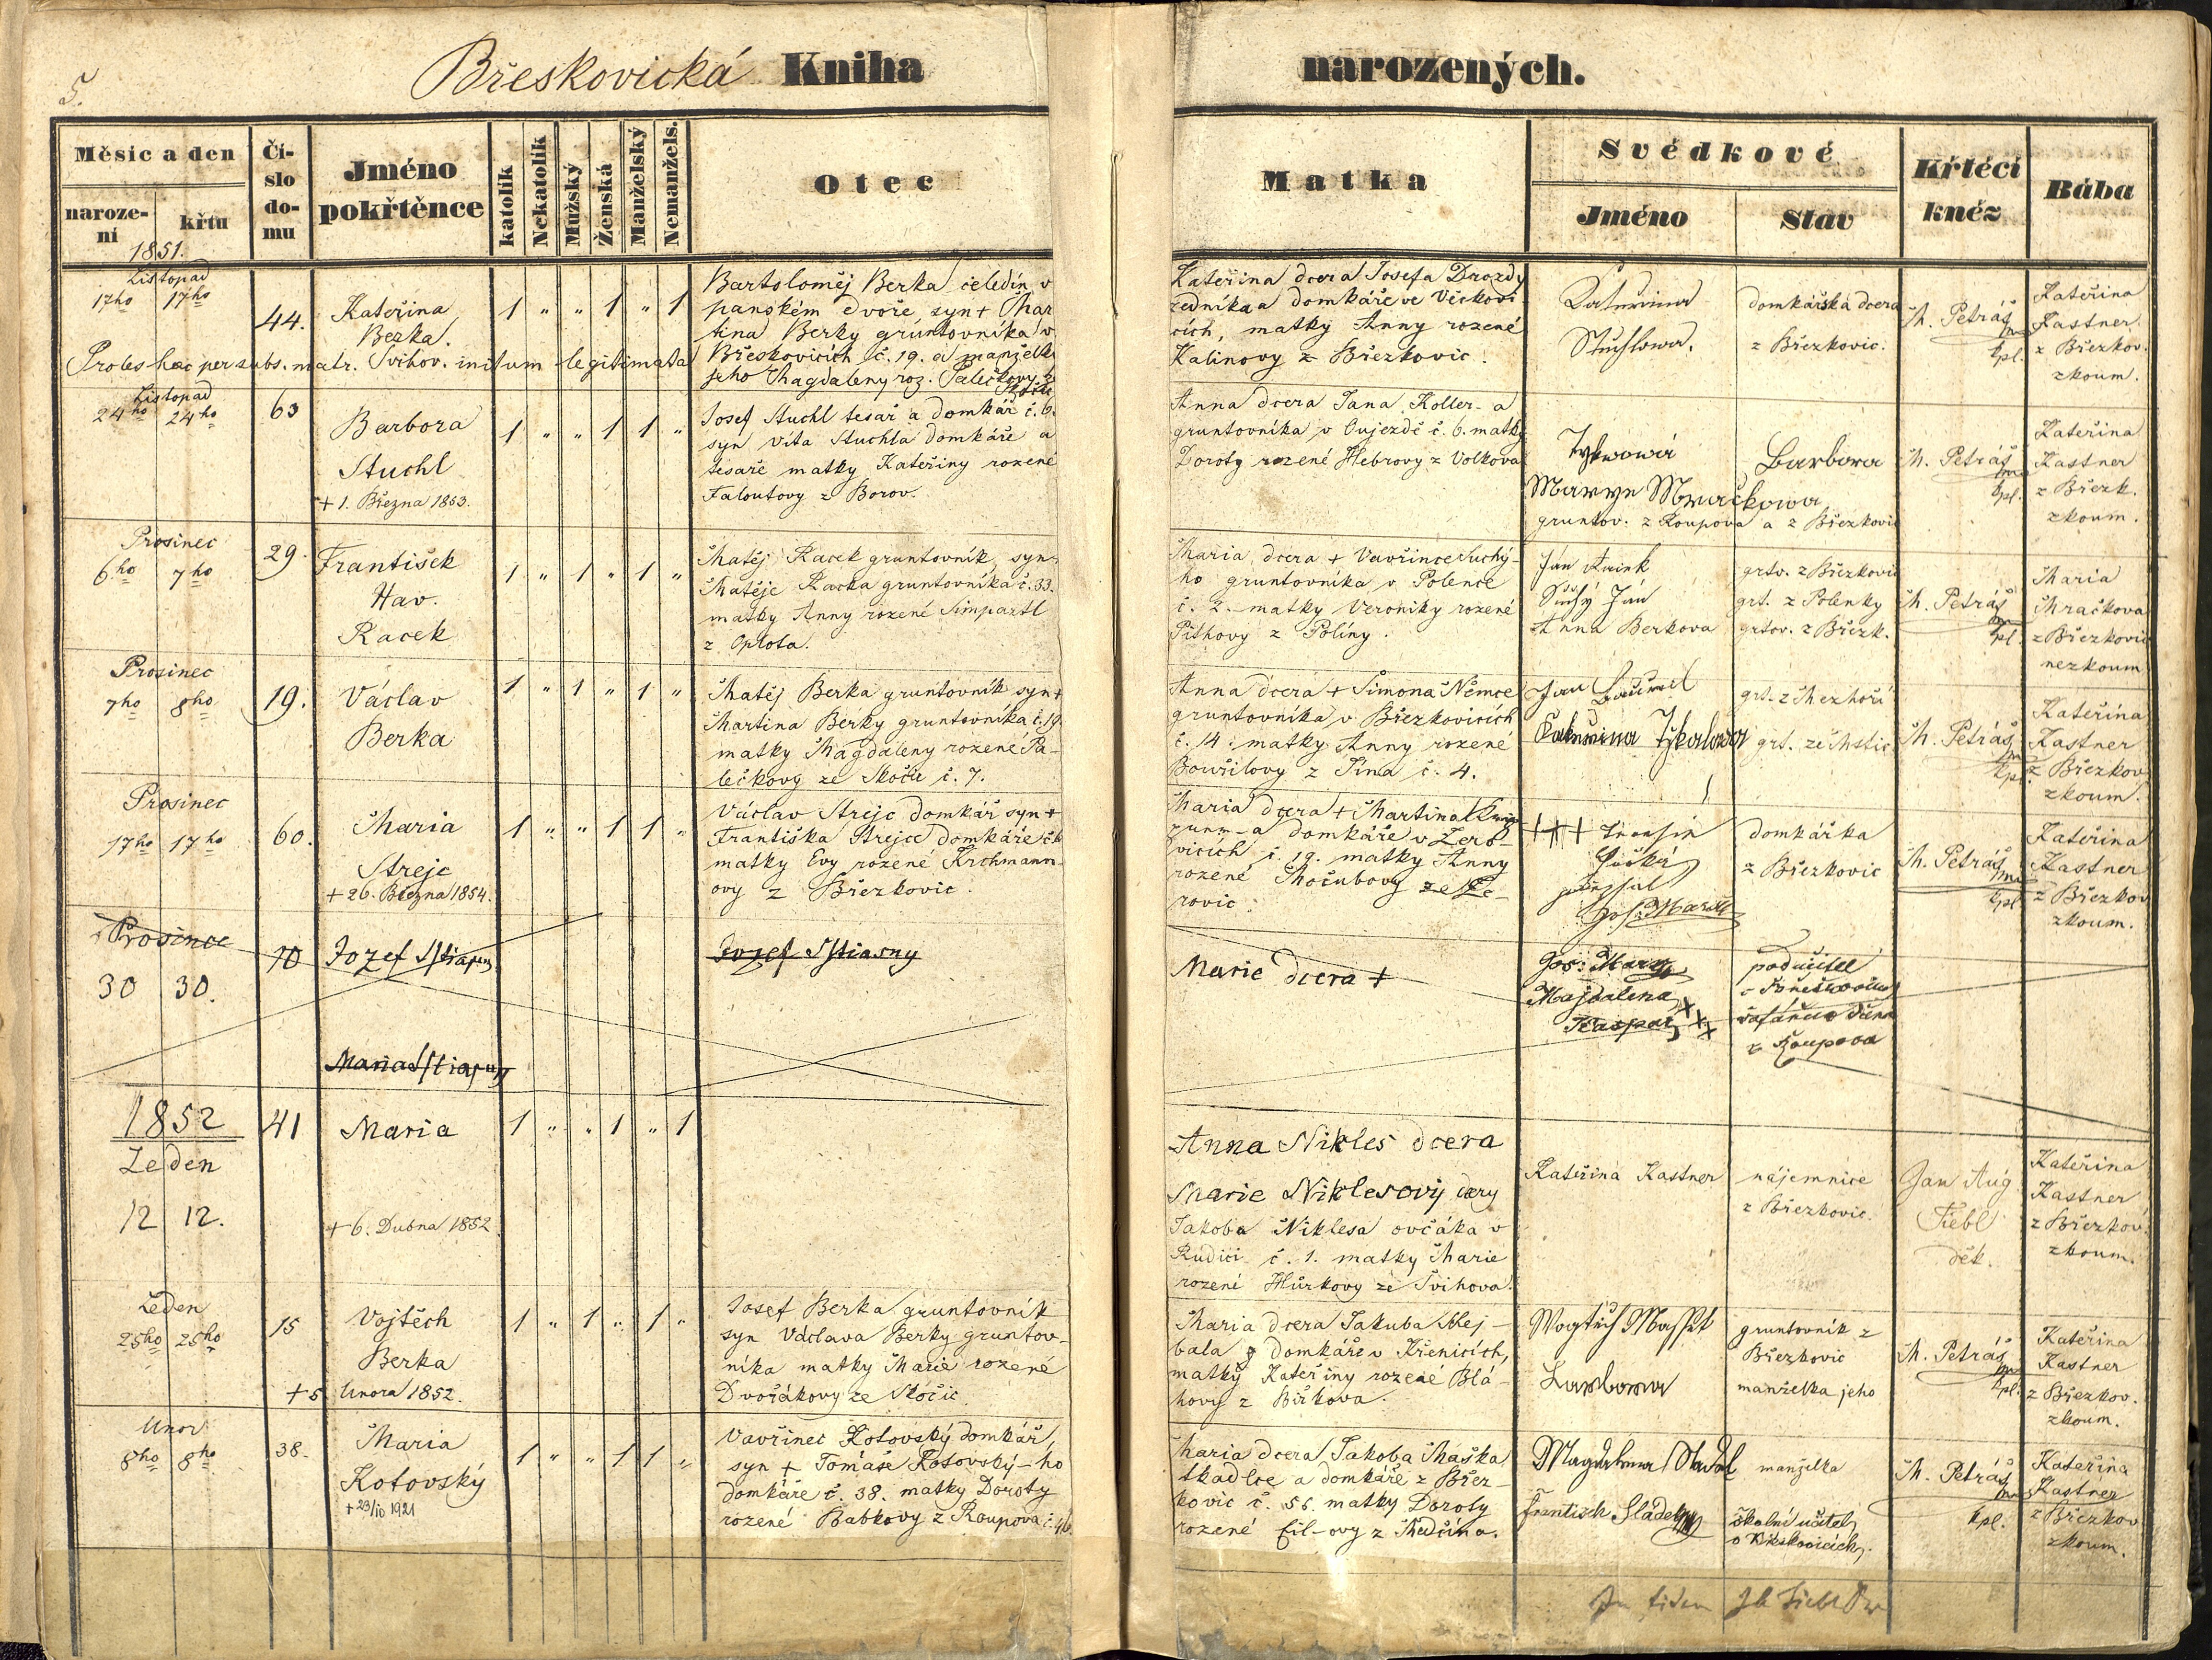 5.
Břeskovická Kniha narozených.
Měsíc a den
naroze-
ní
křtu
Čí-
slo
do-
mu
Jméno
pokřtěnce
katolík
Nekatolík
Mužský
Ženská
Manželský
Nemanžels.
Otec
Matka
Svědkové
Jméno
Stav
Křtěcí
kněz
Bába
1851.
Listopad
17ho 17ho
44.
Kateřina
Berka.
1 " " 1 " 1
Bartoloměj Berka čeledín v
panském dvoře, syn + Mar
tina Berky gruntovníka v
Břeskovicích č. 19. a manželky
jeho Magdaleny roz. Palečkovy z
Skočic
Proles haec per subs. matr. Svihov. initum legitimata
Kateřina dcera Josefa Drozdy
zedníka a domkáře ve Vičkovi
cích, matky Anny rozené
Kalinovy z Březkovic.
Kateřina
Stuchlowa.
domkářská dcera
z Březkovic.
M. Petráš
kpl.
Kateřina
Kastner
z Březkov.
zkoum.
Listopad
24ho 24ho
63
Barbora
Stuchl
+ 1. Března 1853.
1 " " 1 1 "
Josef Stuchl tesař a domkář č. 6.
syn Víta Stuchla domkáře a
tesaře matky Kateřiny rozené
Faloutovy z Borov.
Anna dcera Jana Koller-a
gruntovníka v Oujezdě č. 6. matky
Doroty rozené Hebrovy z Volkova
Barbora
Marye Mračkowa
gruntov. z Roupova a z Březkovic
M. Petráš
kpl.
Kateřina
Kastner
z Březk.
zkoum.
Prosinec
6ho 7ho
29.
František
Hav.
Racek
1 " 1 " 1 "
Matěj Racek gruntovník, syn
Matěje Racka gruntovníka č. 33.
matky Anny rozené Simpartl
z Oplota.
Maria dcera + Vavřince Suchý-
ho gruntovníka v Polence
č. 2. matky Veroniky rozené
Pithovy z Políny.
Ján
Suchý Ján
Anna Berkova
grtv. z Březkovic
grt. z Polenky
grtov. z Březk.
M. Petráš
kpl.
Maria
Mračkova
z Březkovic
nezkoum
Prosinec
7ho 8ho
19.
Václav
Berka
1 " 1 " 1 "
Matěj Berka gruntovník syn +
Martina Berky gruntovníka č. 19
matky Magdaleny rozené Pa-
lečkovy ze Skočic č. 7.
Anna dcera + Simona Němce
gruntovníka v Březkovicích
č. 14. matky Anny rozené
Bouřilovy z Tina č. 4.
Jan
Kateřina
grt. z Mezhoří
grt. ze Mstic
M. Petráš
kpl.
Kateřina
Kastner
z Březkov
zkoum.
Prosinec
17ho 17ho
60.
Maria
Strejc
+ 26. Března 1854.
1 " " 1 1 "
Václav Strejc domkář syn +
Františka Strejce domkáře č. 6
matky Evy rozené Krchmann-
ovy z Březkovic.
Maria dcera + Martina
a domkáře v Zero-
vicích č. 19. matky Anny
rozené Močubovy ze Ze-
rovic.
+++
domkářka
z Březkovic
M. Petráš
kpl
Kateřina
Kastner
z Březkov
zkoum.
Prosince
30 30.
70
Jozef Sstiasny
Maria Sstiasny
Jozef Sstiasny
Marie dcera +
Jos: Marz
Majdalena
Kaspar xxx
podučitel
z Roupova
1852
Leden
12 12.
41
Maria
+ 6. Dubna 1852
1 " " 1 " 1
Anna Nikles dcera
Marie Niklesový dcery
Jakoba Niklesa ovčáka v
Rudici č. 1. matky Marie
rozené Hůrkovy ze Švihova.
Kateřina Kastner
nájemnice
z Březkovic.
Jan Aug
Fiebl
děk.
Kateřina
Kastner
z Březkov
zkoum.
Leden
25ho 25ho
15
Vojtěch
Berka
+ 5 Unora 1852.
1 " 1 " 1 "
Josef Berka gruntovník
syn Václava Berky gruntov-
níka matky Marie rozené
Dvořákovy ze Skočic
Maria dcera Jakuba Mej-
bala z domkáře v Křenicích,
matky Kateřiny rozené Blá-
hovy z Biřkova.
Barbora
gruntovník z
Březkovic
manželka jeho
M. Petráš
kpl.
Kateřina
Kastner
z Březkov.
zkoum.
Unor
8ho 8ho
38.
Maria
Kotovský
+ 23/10 1921
1 " " 1 1 "
Vavřinec Kotovský domkář,
syn + Tomáše Kotovský-ho
domkáře č. 38. matky Doroty
rozené Babkovy z Roupova č. 46
Maria dcera Jakoba Maška
tkadlce a domkáře z Břez-
kovic č. 56. matky Doroty
rozené Cil-ovy z Medčína.
Magdalena
Frantisch Sládek
manželka
školní učitel
v Břeskovicích.
M. Petráš
kpl.
Kateřina
Kastner
z Březkov
zkoum.